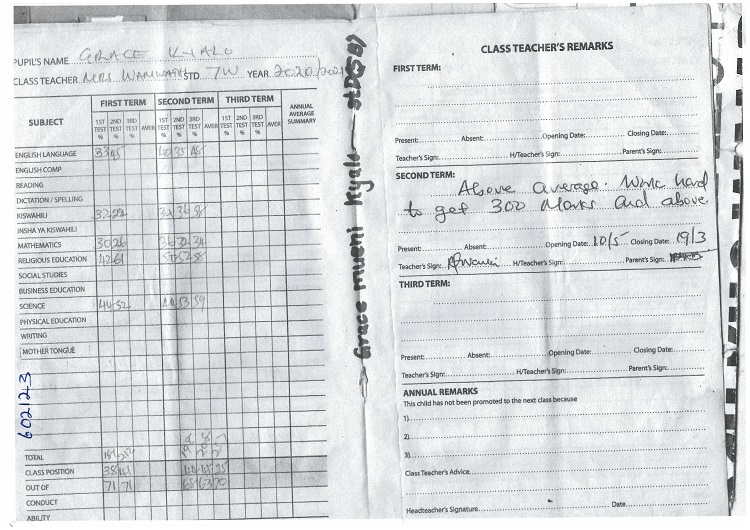 PUPIL'S NAME GRACE KYALO
CLASS TEACHER MRS WAMWATHI STD. 7W YEAR 2020/2021
SUBJECT
FIRST TERM SECOND TERM THIRD TERM ANNUAL AVERAGE SUMMARY
1ST TEST % 2ND TEST % 3RD TEST % AVER 1ST TEST % 2ND TEST % 3RD TEST % AVER 1ST TEST % 2ND TEST % 3RD TEST % AVER
ENGLISH LANGUAGE 33 45 40 35 48
ENGLISH COMP
READING
DICTATION / SPELLING
KISWAHILI 32 22 36
INSHA YA KISWAHILI
MATHEMATICS 30 26 36 32 34
RELIGIOUS EDUCATION 42 61 50 52
SOCIAL STUDIES
BUSINESS EDUCATION
SCIENCE 44 52 44 53 59
PHYSICAL EDUCATION
WRITING
MOTHER TONGUE
TOTAL
CLASS POSITION 38 41
OUT OF 71 71 70
CONDUCT
ABILITY
602123
Grace mueni kyalo
CLASS TEACHER'S REMARKS
FIRST TERM:
Present: Absent: Opening Date: Closing Date:
Teacher's Sign: H/Teacher's Sign: Parent's Sign:
SECOND TERM:
Above average. Work hard
to get 300 marks and above
Present: Absent: Opening Date: 10/5 Closing Date: 19/3
Teacher's Sign: H/Teacher's Sign: Parent's Sign:
THIRD TERM:
Present: Absent: Opening Date: Closing Date:
Teacher's Sign: H/Teacher's Sign: Parent's Sign:
ANNUAL REMARKS
This child has not been promoted to the next class because
1)
2)
3)
Class Teacher's Advice
Headteacher's Signature Date